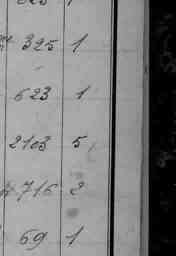 325 1
623 1
2103 5
716 2
69 1